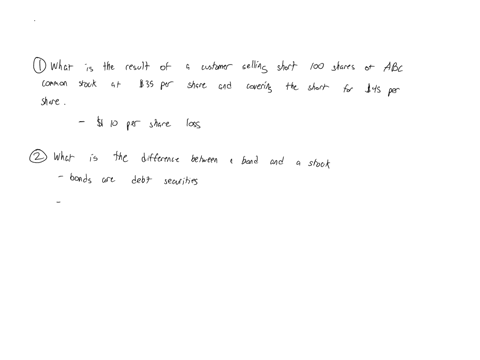 ① What is the result of a customer selling short 100 shares of ABC
common stock at $35 per share and covering the short for $45 per
share.
- $10 per share loss
② What is the difference between a bond and a stock
- bonds are debt securities
-